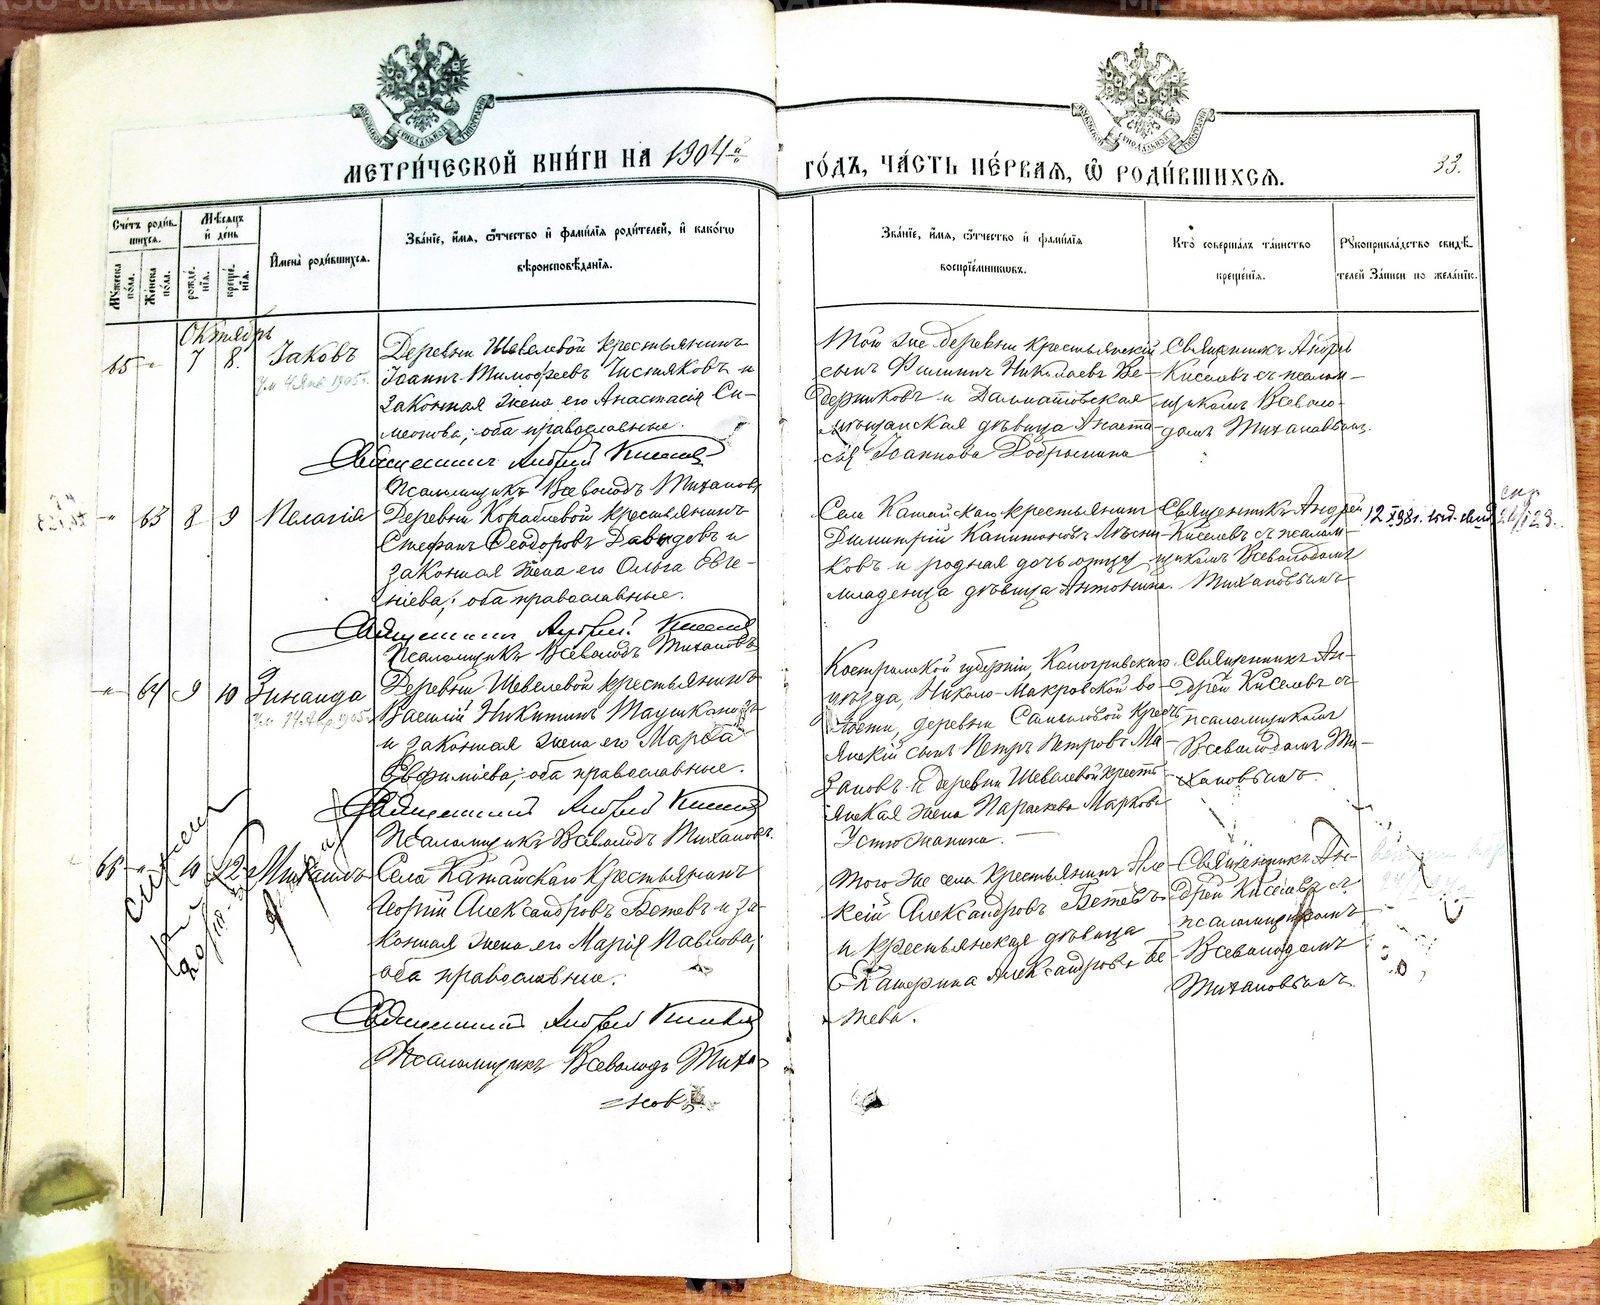 МЕТРИ́ЧЕСКОЙ КНИ́ГИ НА 1904й
ГО́ДЪ, ЧА́СТЬ ПЕ́РВАЯ, Ѽ РОДИ́ВШИХСЯ.
33.
Сче́тъ роди́вшихся.
Му́жеска по́ла.
Же́нска по́ла.
Мѣ́сяцъ и҆ де́нь
рожде́нїя.
креще́нїя.
И҆мена̀ роди́вшихся.
Зва́нїе, и҆́мя, ѻ҆́тчество и҆ фами́лїя роди́телей, и҆ како́гѡ
вѣроисповѣ́данїя.
Зва́нїе, и҆́мя, ѻ҆́тчество и҆ фами́лїя
воспрїе́мниковъ.
Кто̀ соверша́лъ та́инство
креще́нїя.
Рꙋкоприкла́дство свидѣ́телей за́писи по жела́нїю.
Октябрь
65 - 7 8. Іаковъ
Ум. 4 Янв. 1905 г.
Деревни Шевелевой крестьянинъ
Іоаннъ Тимофеевъ Чистяковъ и
законная жена его Анастасія Си-
меонова; оба православные.
Священникъ Андрей Киселевъ
Псаломщикъ Всеволодъ Тихановъ
Той же деревни крестьянскій
сынъ Филиппъ Николаевъ Ве-
дерниковъ и Далматовская
мѣщанская дѣвица Анаста-
сія Іоаннова Добрынина
Священникъ Андрей
Киселевъ съ псалом-
щикомъ Всеволо-
домъ Тихановымъ.
-"- 63 8 9 Пелагія
Деревни Кораблевой крестьянинъ
Стефанъ Ѳеодоровъ Давыдовъ и
законная жена его Ольга Евге-
ніева; оба православные.
Священникъ Андрей Киселевъ
Псаломщикъ Всеволодъ Тихановъ
Села Катайскаго крестьянинъ
Димитрій Капитоновъ Лѣсни-
ковъ и родная дочь отцу
младенца дѣвица Антонина.
Священникъ Андрей
Киселевъ съ псалом-
щикомъ Всеволодомъ
Тихановымъ
-"- 64 9 10 Зинаида
Деревни Шевелевой крестьянинъ
Василій Никитинъ
и законная жена его Марѳа
Евфиміева; оба православные.
Священникъ Андрей Киселевъ
Псаломщикъ Всеволодъ Тихановъ.
Костромской губерніи, Кологривскаго
уѣзда, Николо-Макровской во-
лости, деревни Самыловой крестъ-
янскій сынъ Петръ Петровъ Ма-
зановъ и деревни Шевелевой кресть-
янская жена Параскева Маркова
Устюжанина.
Священникъ Ан-
дрей Киселевъ съ
псаломщикомъ
Всеволодомъ Ти-
хановымъ.
66 -"- 10 12 Михаилъ
Села Катайскаго крестьянинъ
Георгій Александровъ Бетевъ и за-
конная жена его Марія Павлова;
оба православные.
Священникъ Андрей Киселевъ
Псаломщикъ Всеволодъ Тиха-
новъ
Того же села крестьянинъ Але-
ксій Александровъ Бетевъ
и крестьянская дѣвица
Екатерина Александрова Бе-
тева.
Священникъ Ан-
дрей Киселевъ съ
псаломщикомъ
Всеволодомъ
Тихановымъ.
METRIKI.GASO-URAL.RU